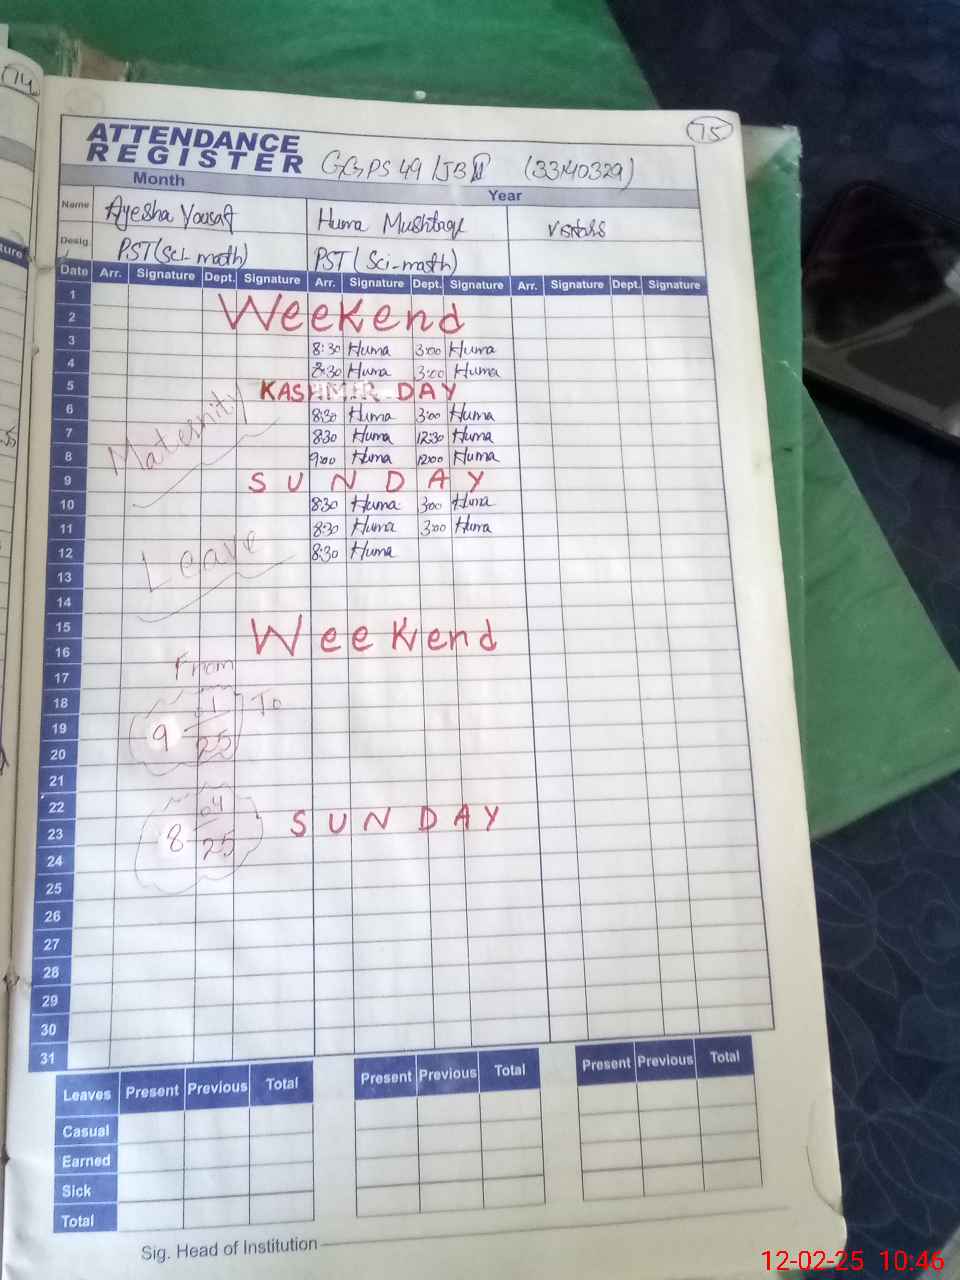 74
75
ATTENDANCE
REGISTER GGPS 49/JB (33140329)
Month Year
Name Ayesha Yousaf Huma Mushtaq
Desig. PST (Sci-math) PST (Sci-math)
ture
Date Arr. Signature Dept. Signature Arr. Signature Dept. Signature Arr. Signature Dept. Signature
1
2 Weekend
3 8:30 Huma 3:00 Huma
4 8:30 Huma 3:00 Huma
5 KASHMIR DAY
6 8:30 Huma 3:00 Huma
7 Maternity 8:30 Huma 12:30 Huma
8 9:00 Huma 12:00 Huma
9 SUNDAY
10 8:30 Huma 3:00 Huma
11 8:30 Huma 3:00 Huma
12 Leave 8:30 Huma
13
14
15 Weekend
16
17 From
18 01 To
19 9
20 25
21
22 04
23 8 SUNDAY
24 25
25
26
27
28
29
30
31
Leaves Present Previous Total Present Previous Total Present Previous Total
Casual
Earned
Sick
Total
Sig. Head of Institution
12-02-25 10:46